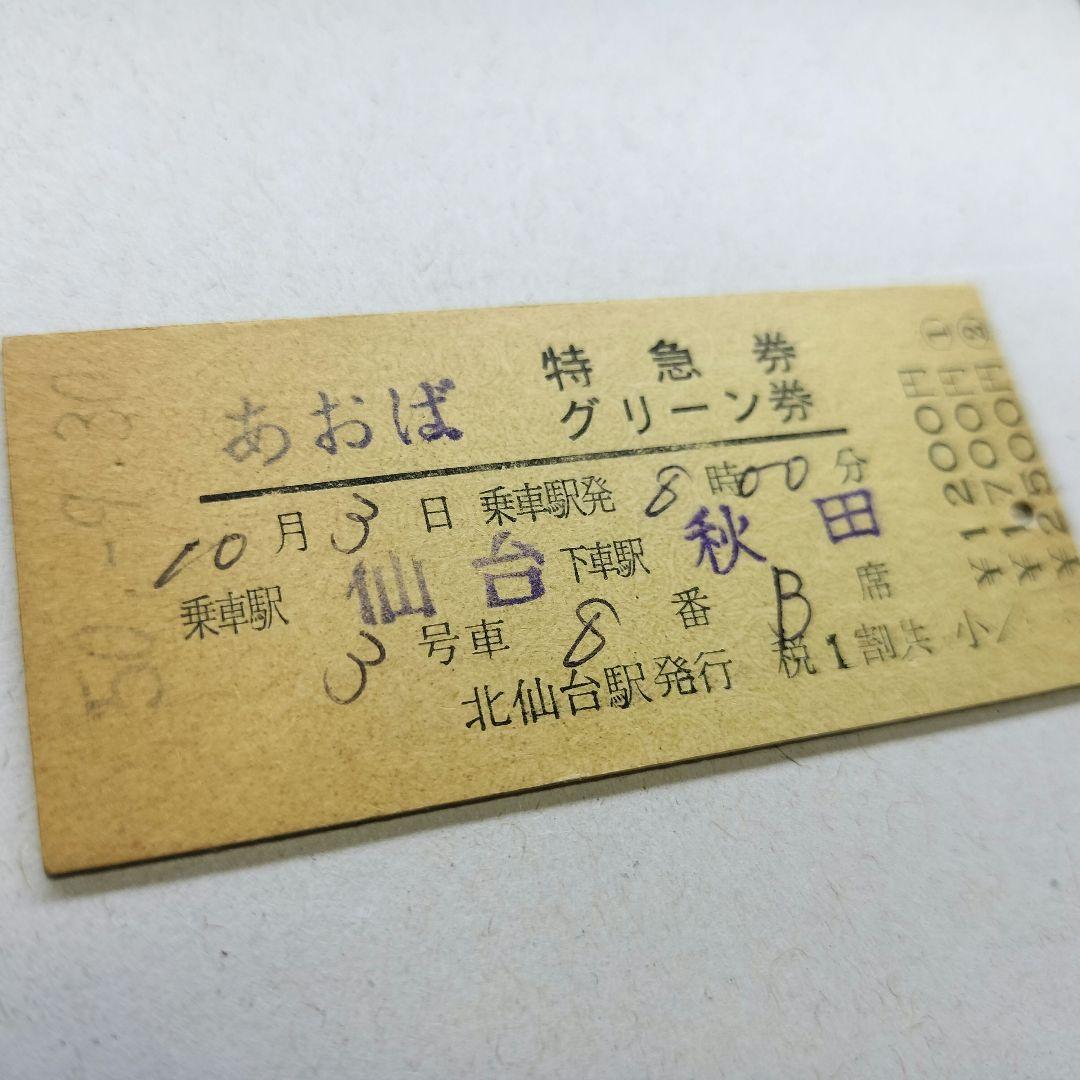 50.-9.30
あおば
特急券
グリーン券
10月3日 乗車駅発 8時00分
乗車駅 仙台 下車駅 秋田
3号車 8番 B席
北仙台駅発行 税1割共 小
① ¥1200円
② ¥1700円
¥2500円